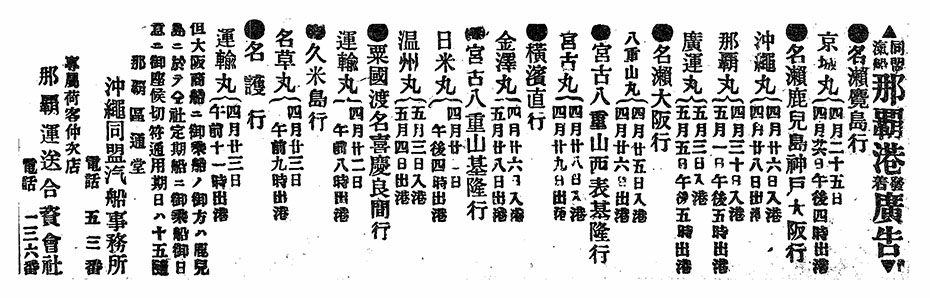 ▲同盟汽船那覇港發着廣告▼
●名瀬鹿兒島行
京城丸 四月二十五日
四月廿六日午後四時出港
●名瀬鹿兒島神戸大阪行
沖繩丸 四月廿六日入港
四月廿八日出港
那覇丸 四月三十日入港
五月一日午後五時出港
廣運丸 五月三日入港
五月五日午後五時出港
●名瀬大阪行
八重山丸 四月廿五日入港
四月廿六日出港
●宮古八重山西表基隆行
宮古丸 四月廿八日入港
四月廿九日出港
●横濱直行
金澤丸 四月廿六日入港
五月廿八日出港
●宮古八重山基隆行
日米丸 四月廿一日
午後四時出港
温州丸 五月三日入港
五月四日出港
●粟國渡名喜慶良間行
運輸丸 四月廿二日
午前八時出港
●久米島行
名草丸 四月廿三日
午前九時出港
●名護行
運輸丸 四月廿三日
午前十一時出港
但大阪商船ニ御乗船ノ御方ハ鹿兒
島ニ於テ仝社定期船ニ御乗船御日
意ニ御座候切符通用期日ハ十五隨
那覇區通堂
沖繩同盟汽船事務所
電話 五三番
專屬荷客仲次店
那覇運送合資會社
電話 一三六番